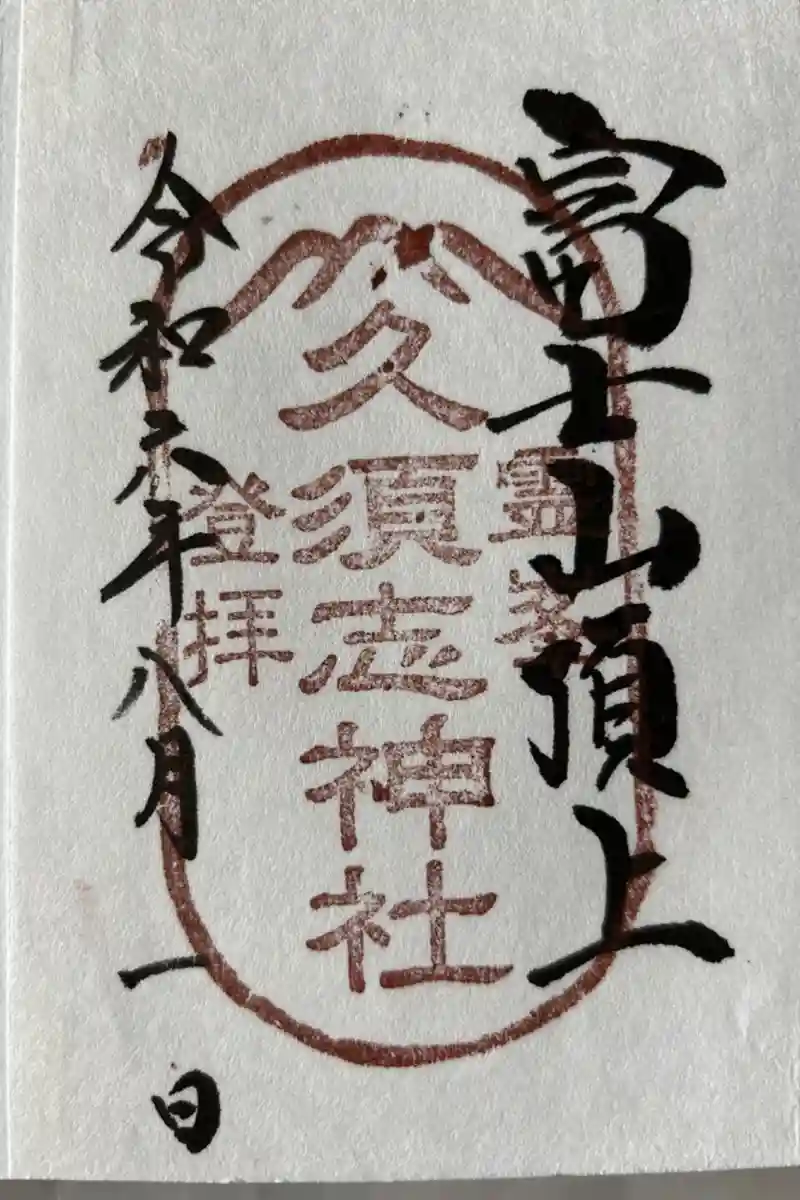 冨士山頂上
霊峯
久須志神社
登拝
令和六年八月一日